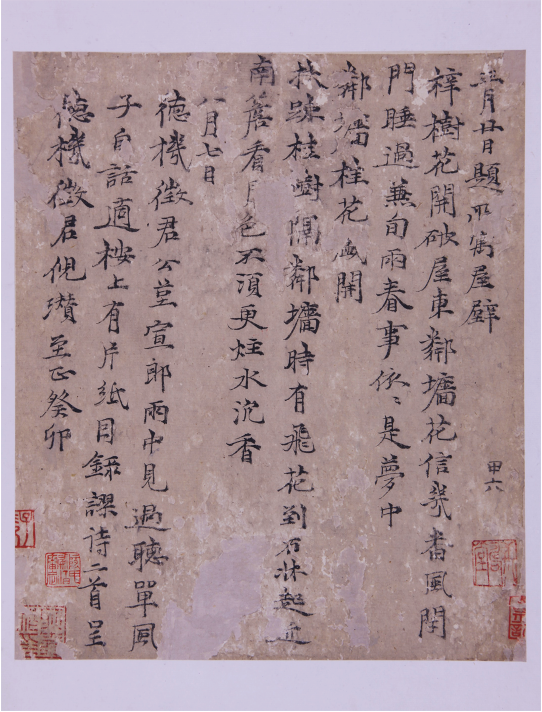 三月廿日題所寓屋壁
梓樹花開破屋東鄰墻花信幾番風閉
門睡過兼旬雨春事依〻是夢中
鄰墻桂花盛開
扶踈桂樹隔鄰墻時有飛花到石牀起近
南簷看月色不須更炷水沉香
八月七日
德機徵君公宣郎雨中見過聽單風
子自話適桉上有片紙因錄謬詩二首呈
德機徵君倪瓚至正癸卯
甲六